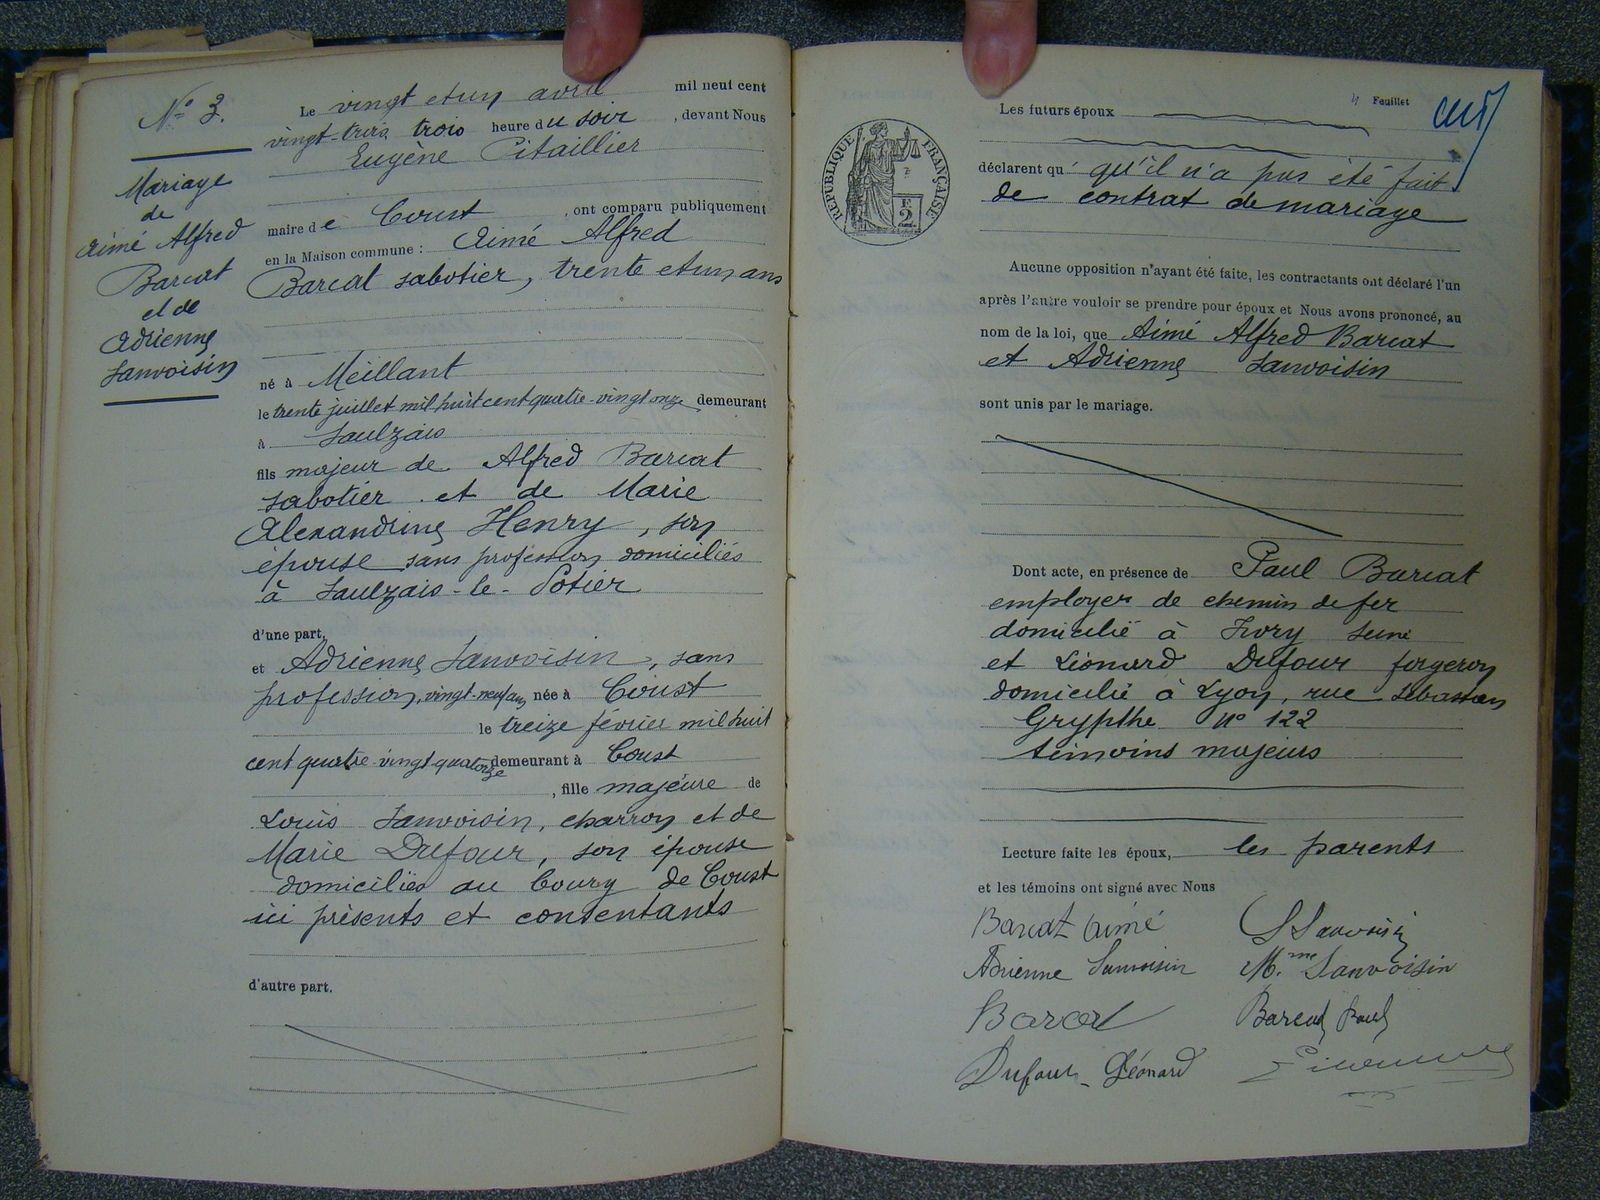 N° 3.
Mariage
de
Aimé Alfred
Barcat
et de
Adrienne
Sauvoisin
Le vingt et un avril mil neuf cent
vingt-trois trois heure du soir, devant Nous
Eugène Pitaillier
maire de Coust, ont comparu publiquement
en la Maison commune : Aimé Alfred
Barcat sabotier, trente et un ans
né à Meillant
le trente juillet mil huit cent quatre-vingt onze demeurant
à Saulzais
fils majeur de Alfred Barcat
sabotier et de Marie
Alexandrine Henry, son
épouse sans profession domiciliés
à Saulzais-le-Potier
d'une part,
et Adrienne Sauvoisin, sans
profession, vingt-neuf ans née à Coust
le treize février mil huit
cent quatre-vingt quatorze demeurant à Coust
, fille majeure de
Louis Sauvoisin, charron et de
Marie Dufour, son épouse
domiciliés au bourg de Coust
ici présents et consentants
d'autre part.
Feuillet
RÉPUBLIQUE FRANÇAISE
2
Les futurs époux
déclarent qu' qu'il n'a pas été fait
de contrat de mariage
Aucune opposition n'ayant été faite, les contractants ont déclaré l'un
après l'autre vouloir se prendre pour époux et Nous avons prononcé, au
nom de la loi, que Aimé Alfred Barcat
et Adrienne Sauvoisin
sont unis par le mariage.
Dont acte, en présence de Paul Barcat
employer de chemin de fer
domicilié à Ivry Seine
et Léonard Dufour forgeron
domicilié à Lyon, rue Sébastien
Grypthe n° 122
témoins majeurs
Lecture faite les époux, les parents
et les témoins ont signé avec Nous
Barcat Aimé
L Sauvoisin
Adrienne Sauvoisin
M.me Sauvoisin
Barcat
Barcat Paul
Dufour Léonard